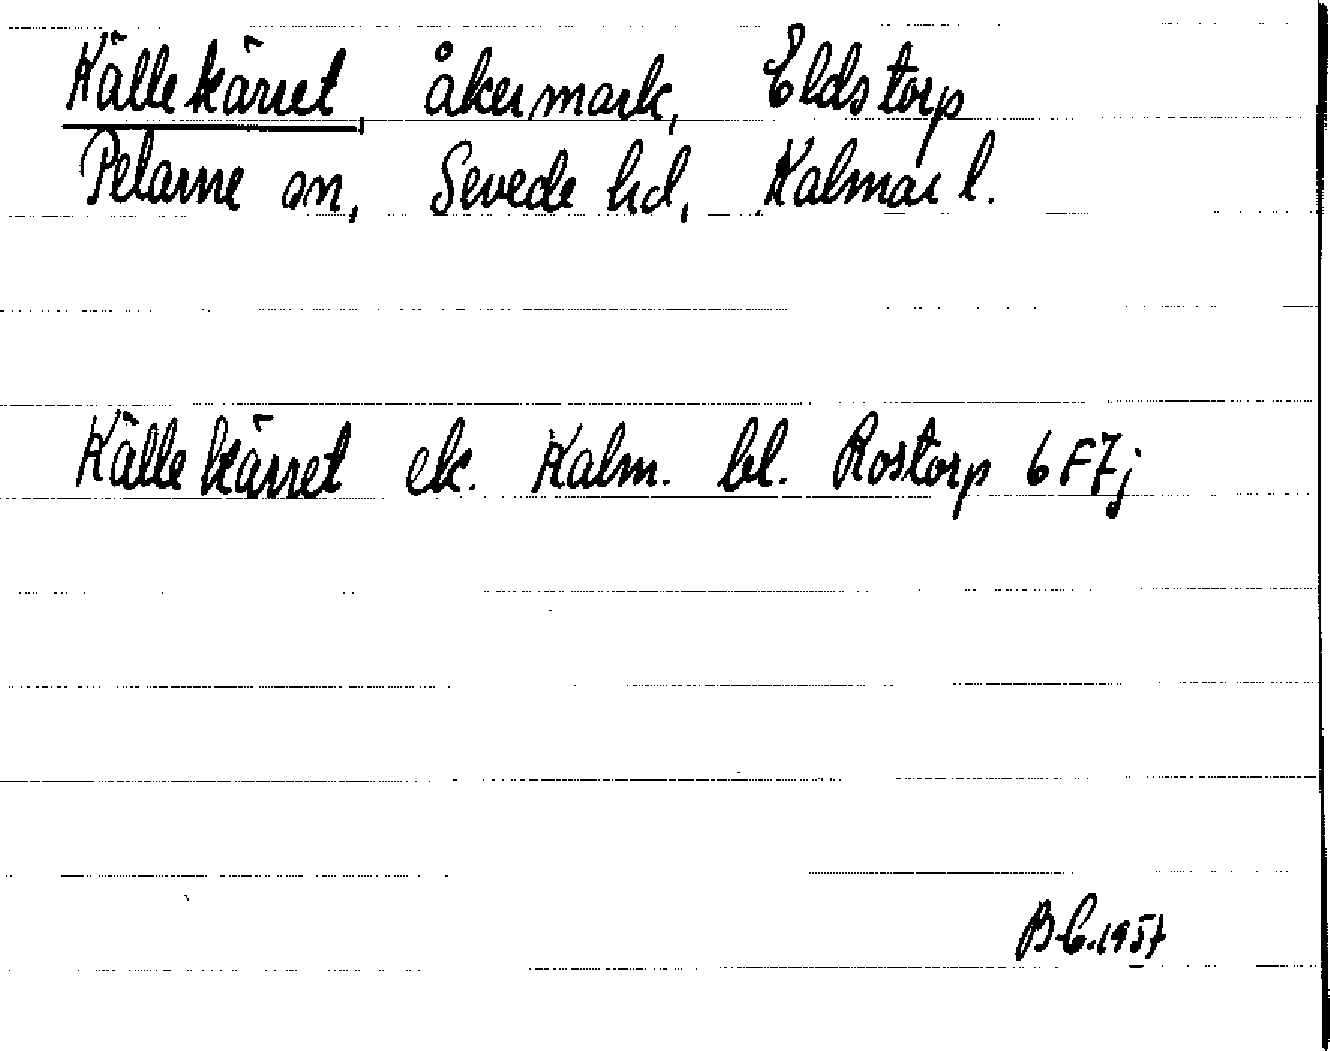 Källekärret, åkermark, Eldstorp
Pelarne sn, Sevede hd, Kalmar l.
Källekärret ek. Kalm. bl. Rostorp 6F7j
1957